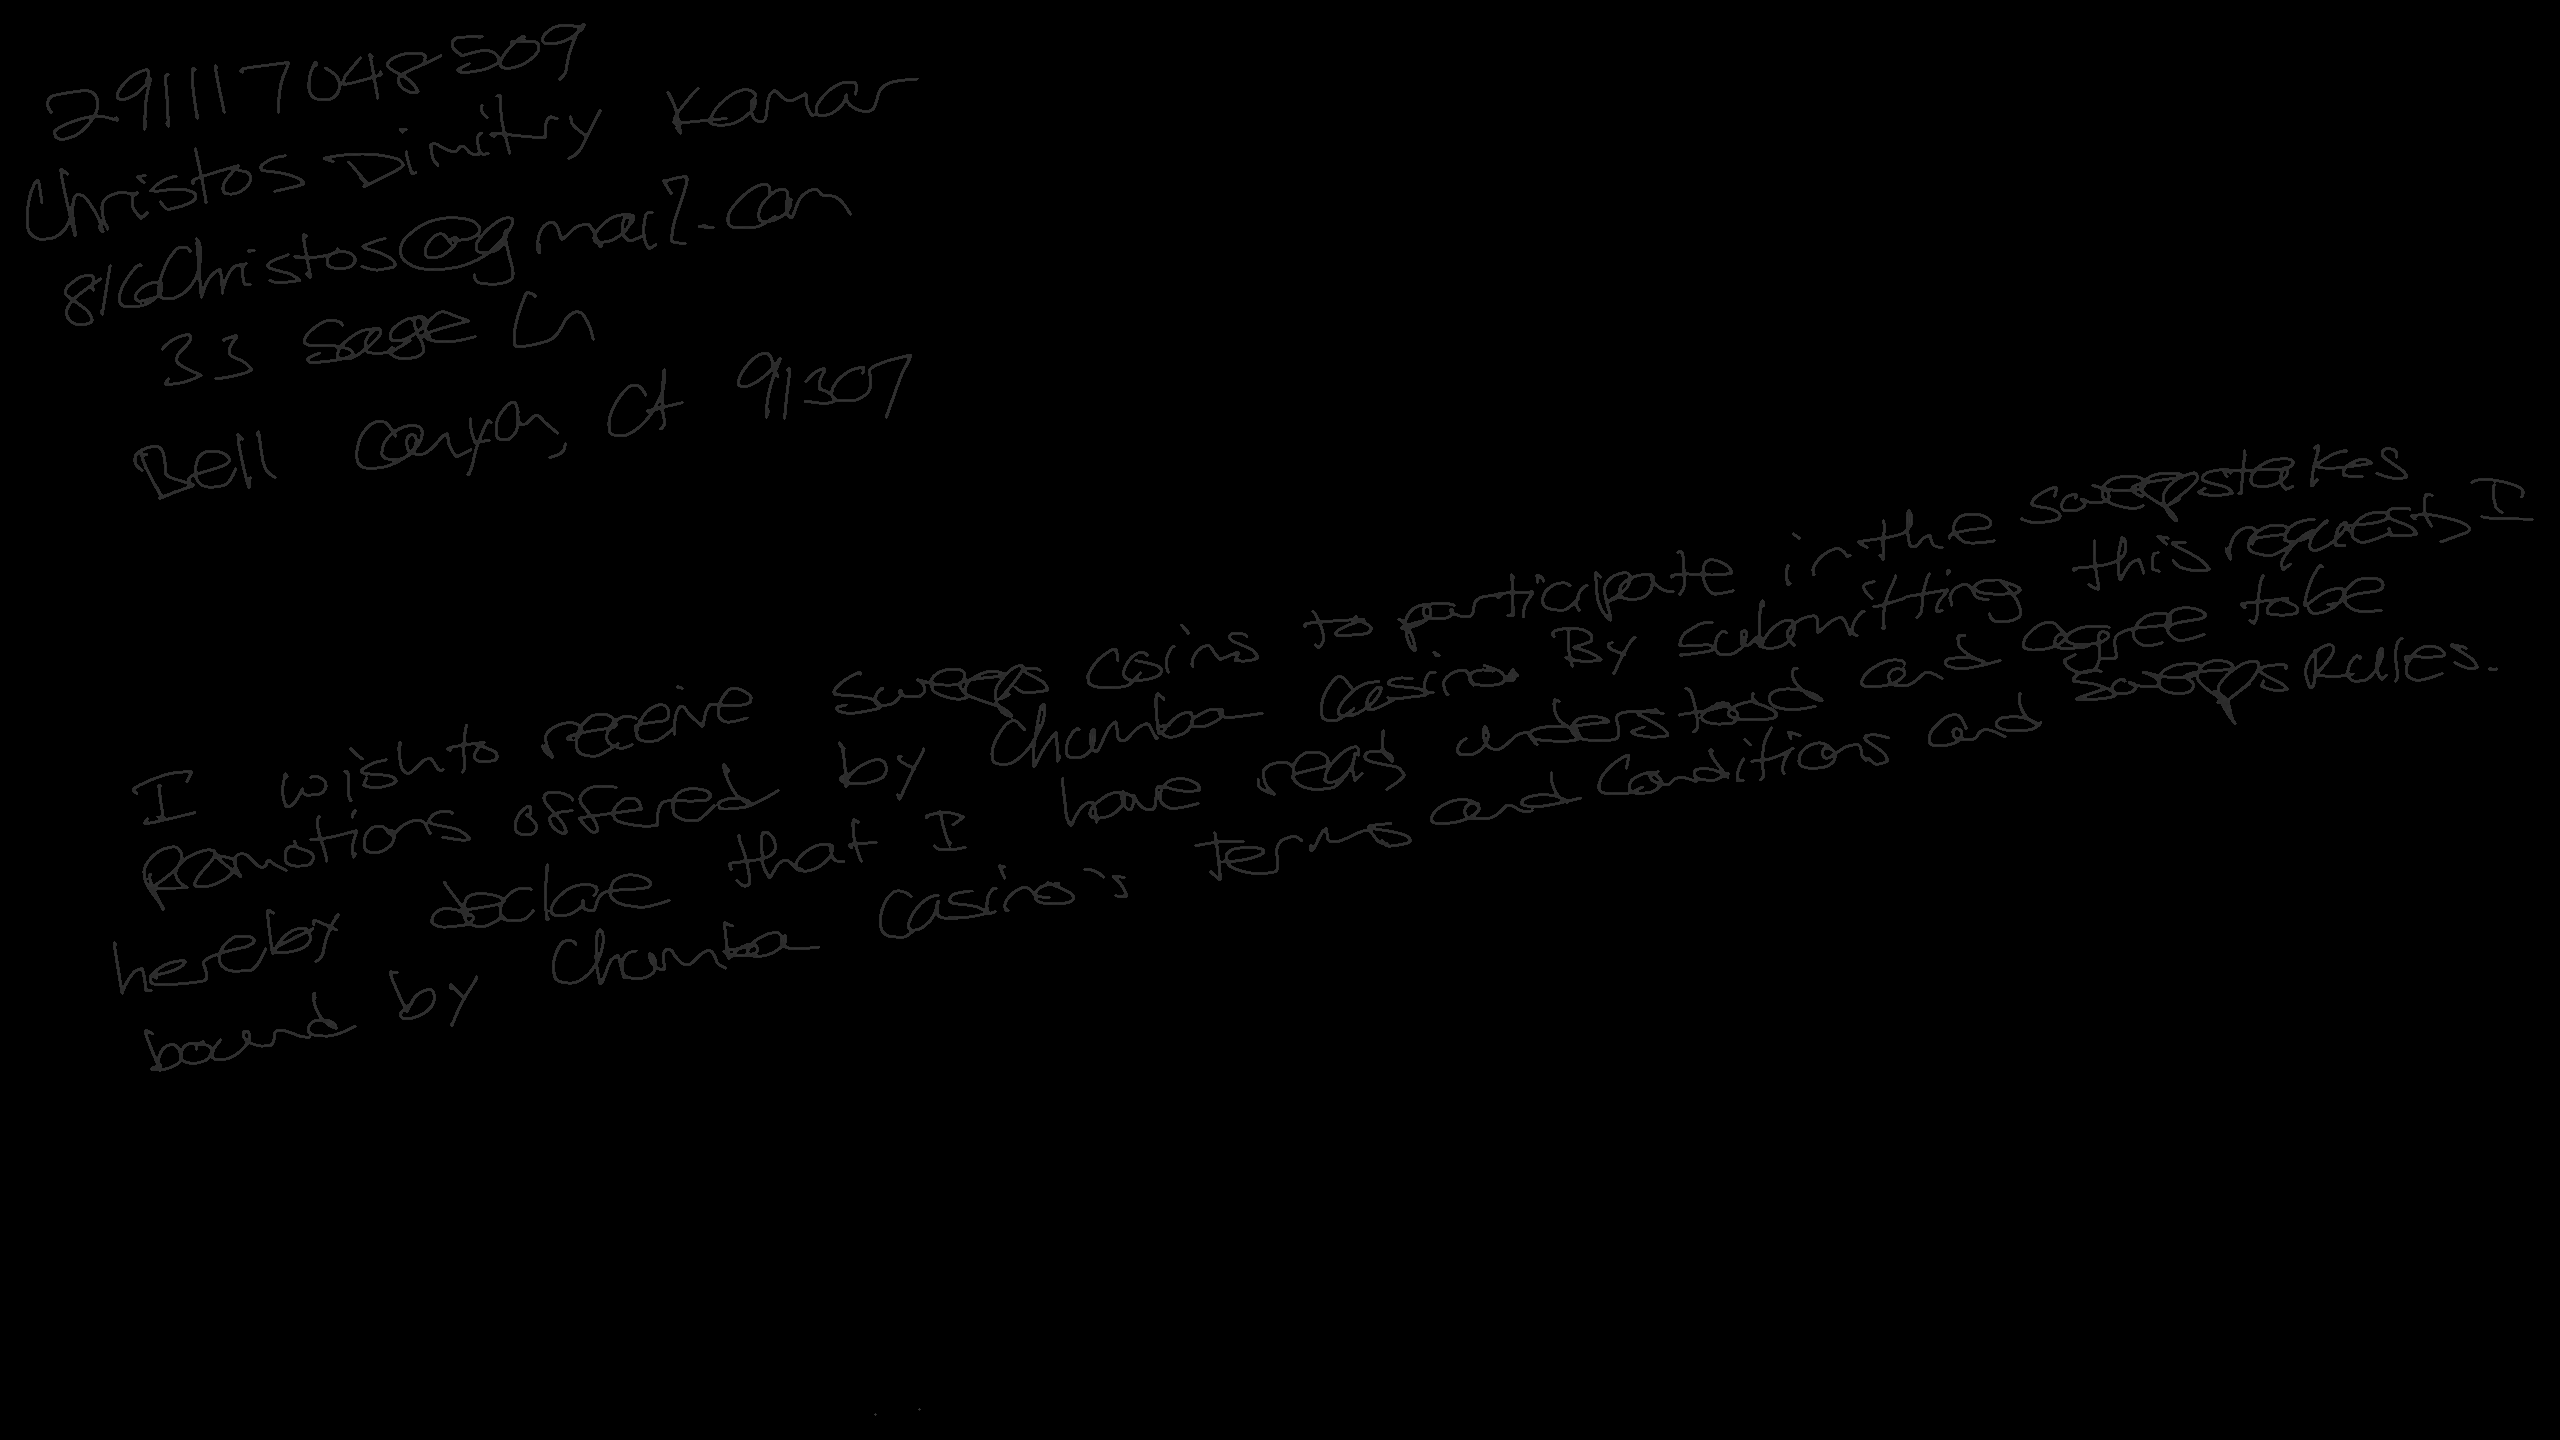 291117048509
Christos Dimitry Kamar
816Christos@gmail.com
33 Sage Ln
Bell Canyon, CA 91307
I wish to receive sweeps coins to participate in the sweepstakes
Promotions offered by Chumba Casino. By submitting this request, I
hereby declare that I have read, understood and agree to be
bound by Chumba Casino's terms and Conditions and sweeps Rules.